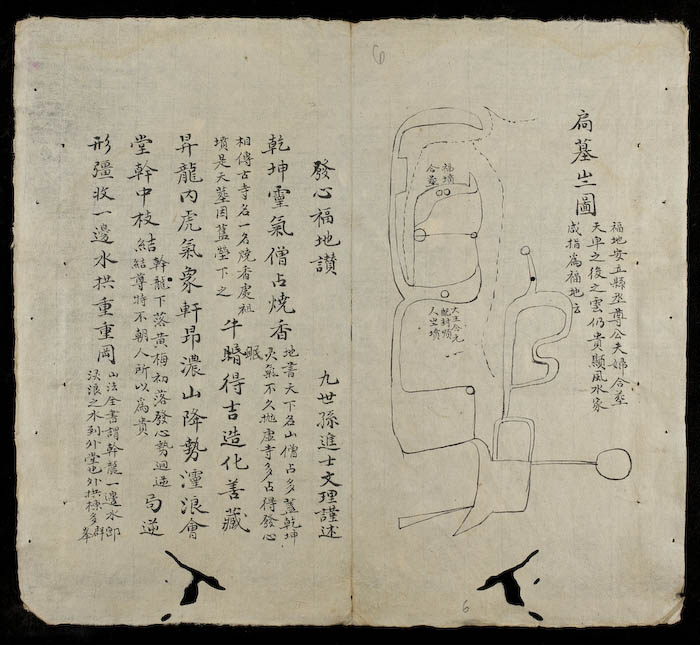 扃墓㞢圖
福地安立縣丞尊公夫婦合墓
天卑之後之雲仍貴顯風水家
咸指為福地云
福墳
合墓
大王合元
乾封順
人㞢墳
6
6
發心福地讃
九世孫進士文理謹述
乾坤靈氣僧占燒香
地書天下名山僧占多蓋乾坤
灵氣不久拋虛寺多占得發心
相傳古寺名一名燒香處祖
墳是天墓因葢塋下之
牛眠
暗得吉造化善藏
昇龍內虎氣象軒昂濃山降勢瀘浪會
堂幹中枝結
幹龍下落黄梅初落發心勢迴逆
結尊特不朝人所以為貴
局逆
形彊收一邊水拱重重岡
山法全書謂幹龍一邊水郎
浪之水到外堂也外拱棟多群峯